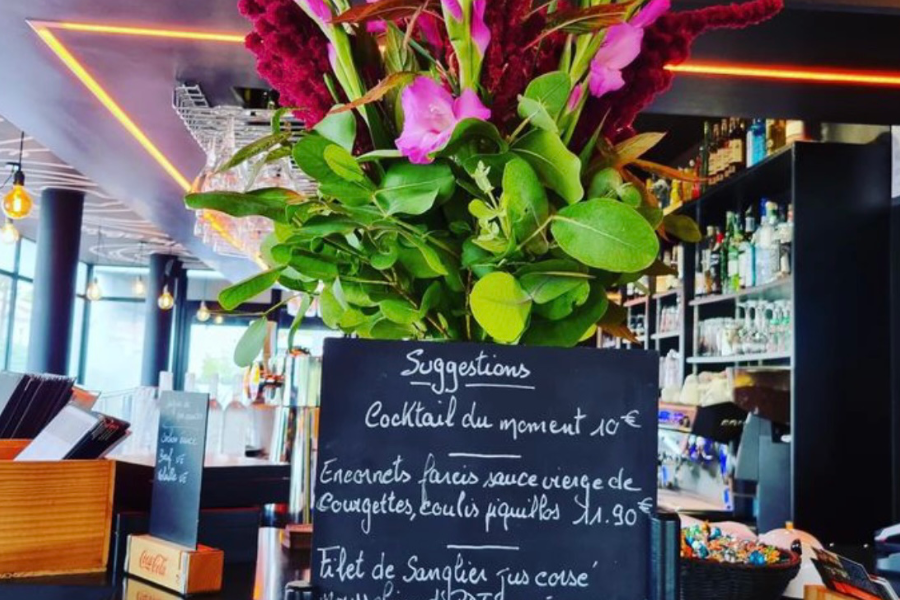 Suggestions
Cocktail du moment 10€
Encornets farcis sauce vierge de
Courgettes, coulis piquillos 11.90€
Filet de Sanglier jus corsé
Coca-Cola